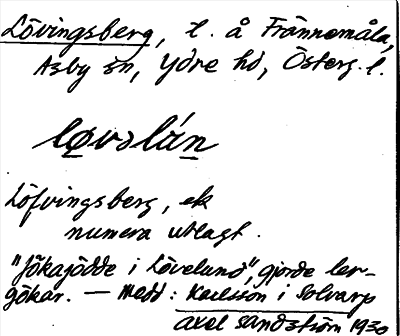 Lövingsberg, l. å Frännemåla,
Asby sn, Ydre hd, Österg. l.
løvəlán
Löfvingsberg, ek
numera utlagt.
"Jökajödde i Lövelund", gjorde ler-
gökar. — Medd: Karlsson i Solvarp
Axel Sandström 1930